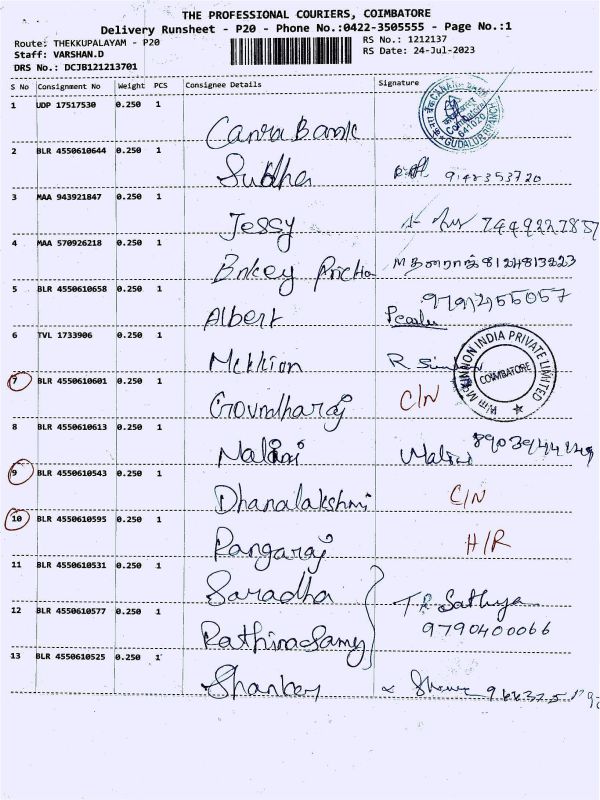 THE PROFESSIONAL COURIERS, COIMBATORE
Delivery Runsheet - P20 - Phone No.:0422-3505555 - Page No.:1
Route: THEKKUPALAYAM - P20
RS No.: 1212137
Staff: VARSHAN.D
RS Date: 24-Jul-2023
DRS No.: DCJB121213701
S No Consignment No Weight PCS Consignee Details Signature
1 UDP 17517530 0.250 1 Canra Bank
CANARA BANK Coimbatore 641020 GUDALUR BRANCH
2 BLR 4550610644 0.250 1 Subha
3 MAA 943921847 0.250 1 Jessy
4 MAA 570926218 0.250 1 8124813223
5 BLR 4550610658 0.250 1 Albert
6 TVL 1733906 0.250 1
INDIA PRIVATE LIMITED COIMBATORE
7 BLR 4550610601 0.250 1 Govndharaj C/N
8 BLR 4550610613 0.250 1 Malini Malini
9 BLR 4550610543 0.250 1 Dhanalakshmi C/N
10 BLR 4550610595 0.250 1 Rangaraj H/R
11 BLR 4550610531 0.250 1 Saradha
12 BLR 4550610577 0.250 1 Rathinasamy Sathya
9790400066
13 BLR 4550610525 0.250 1